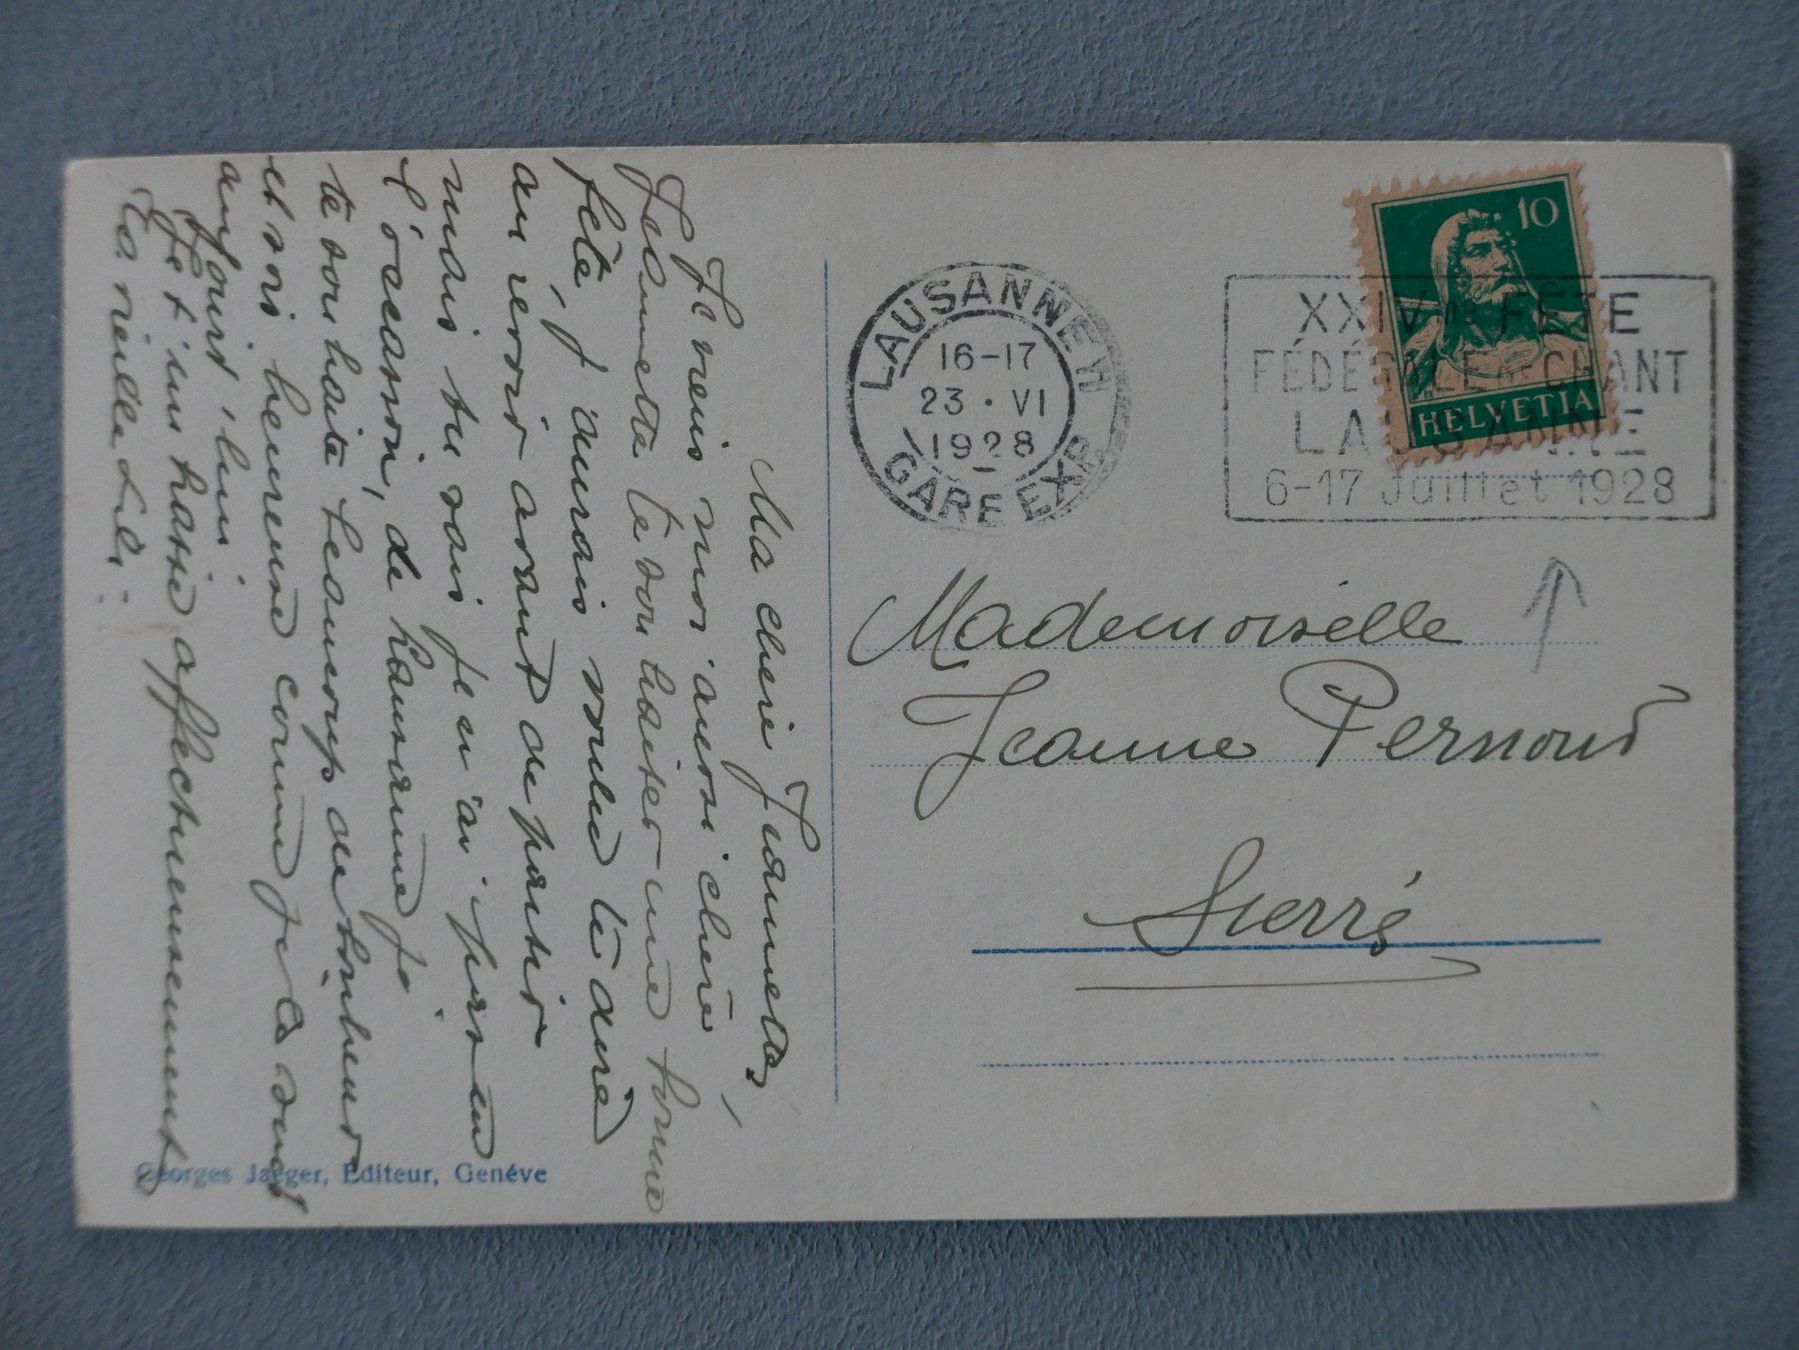 Ma chère Jeannette,
Je viens moi aussi chère
Jeannette te souhaiter une bonne
fête, j'aurais voulu te
au revoir avant de partir
mais tu sais je n'ai pas eu
l'occasion, de Lausanne je
te souhaite beaucoup de bonheur
et sois heureuse comme je le suis
aujourd'hui
Je t'embrasse affectueusement
Ta vieille Lili
Georges Jaeger, Editeur, Genéve
LAUSANNE
16-17
23 · VI
1928
GARE EXP.
10
HELVETIA
XXIVme FÊTE
FÉDÉRALE DE CHANT
LAUSANNE
6-17 Juillet 1928
Mademoiselle
Jeanne
Sierre